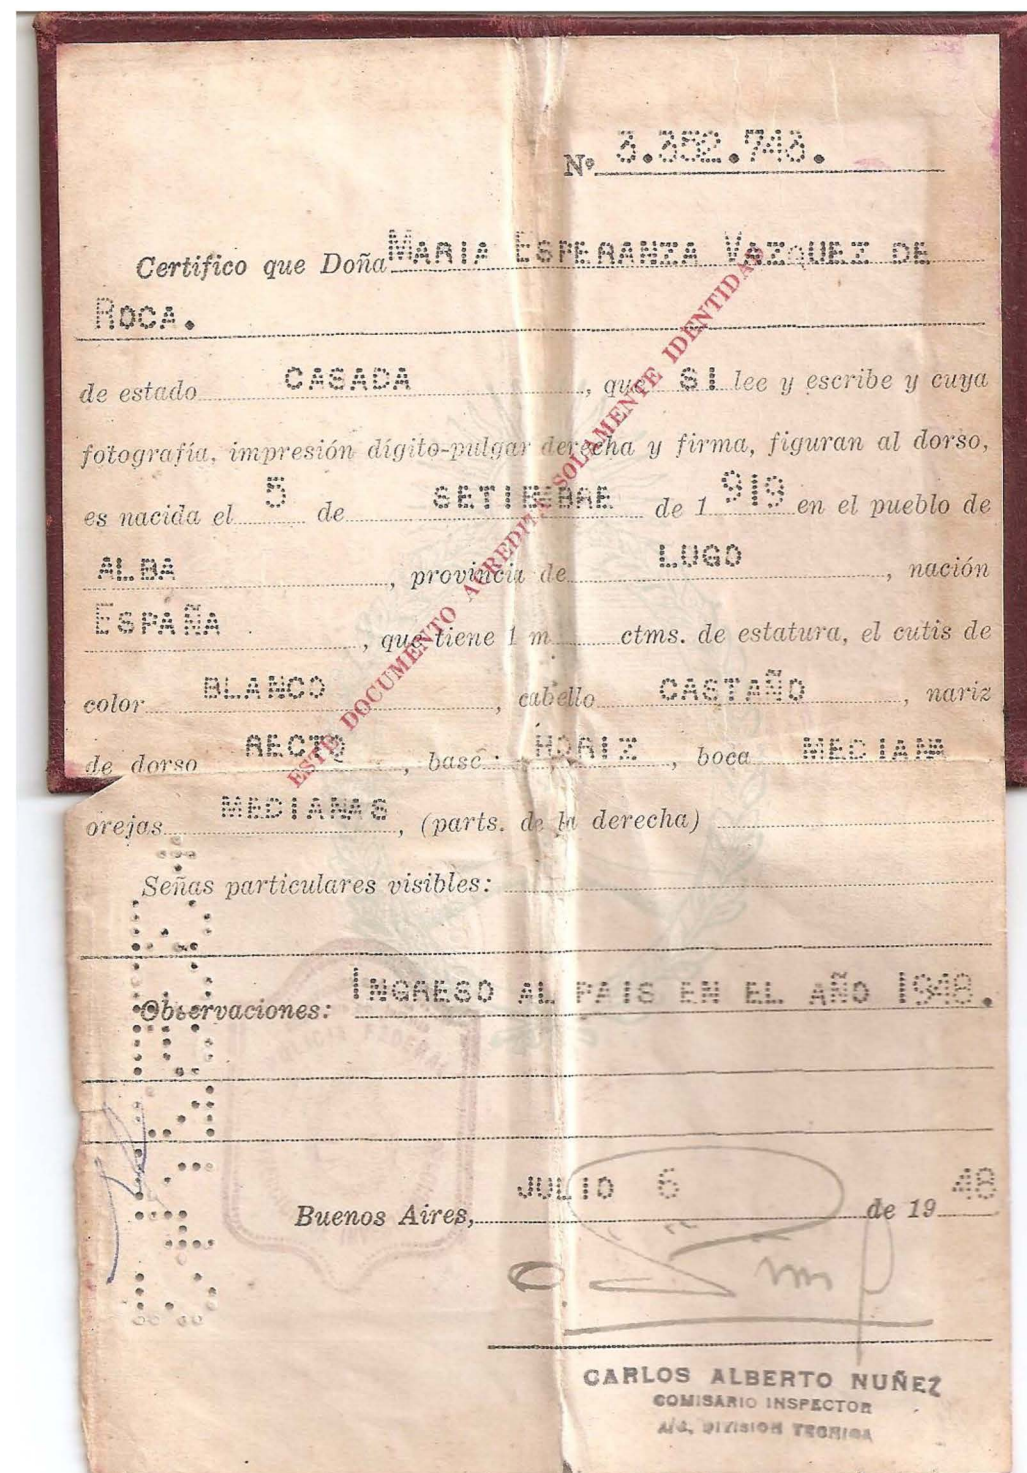 Nº 3.352.743.
Certifico que Doña MARIA ESPERANZA VAZQUEZ DE
ROCA.
de estado CASADA, que SI lee y escribe y cuya
fotografía, impresión dígito-pulgar derecha y firma, figuran al dorso,
es nacida el 5 de SETIEMBRE de 1 919 en el pueblo de
ALBA, provincia de LUGO, nación
ESPAÑA, que tiene 1 m ctms. de estatura, el cutis de
color BLANCO, cabello CASTAÑO, nariz
de dorso RECTO, base: HORIZ, boca MEDIANA
orejas MEDIANAS, (parts. de la derecha)
Señas particulares visibles:
Observaciones: INGRESO AL PAIS EN EL AÑO 1948.
Buenos Aires, JULIO 6 de 19 48
ESTE DOCUMENTO ACREDITA SOLAMENTE IDENTIDAD
POLICIA FEDERAL
CARLOS ALBERTO NUÑEZ
COMISARIO INSPECTOR
A/C. DIVISION TECNICA